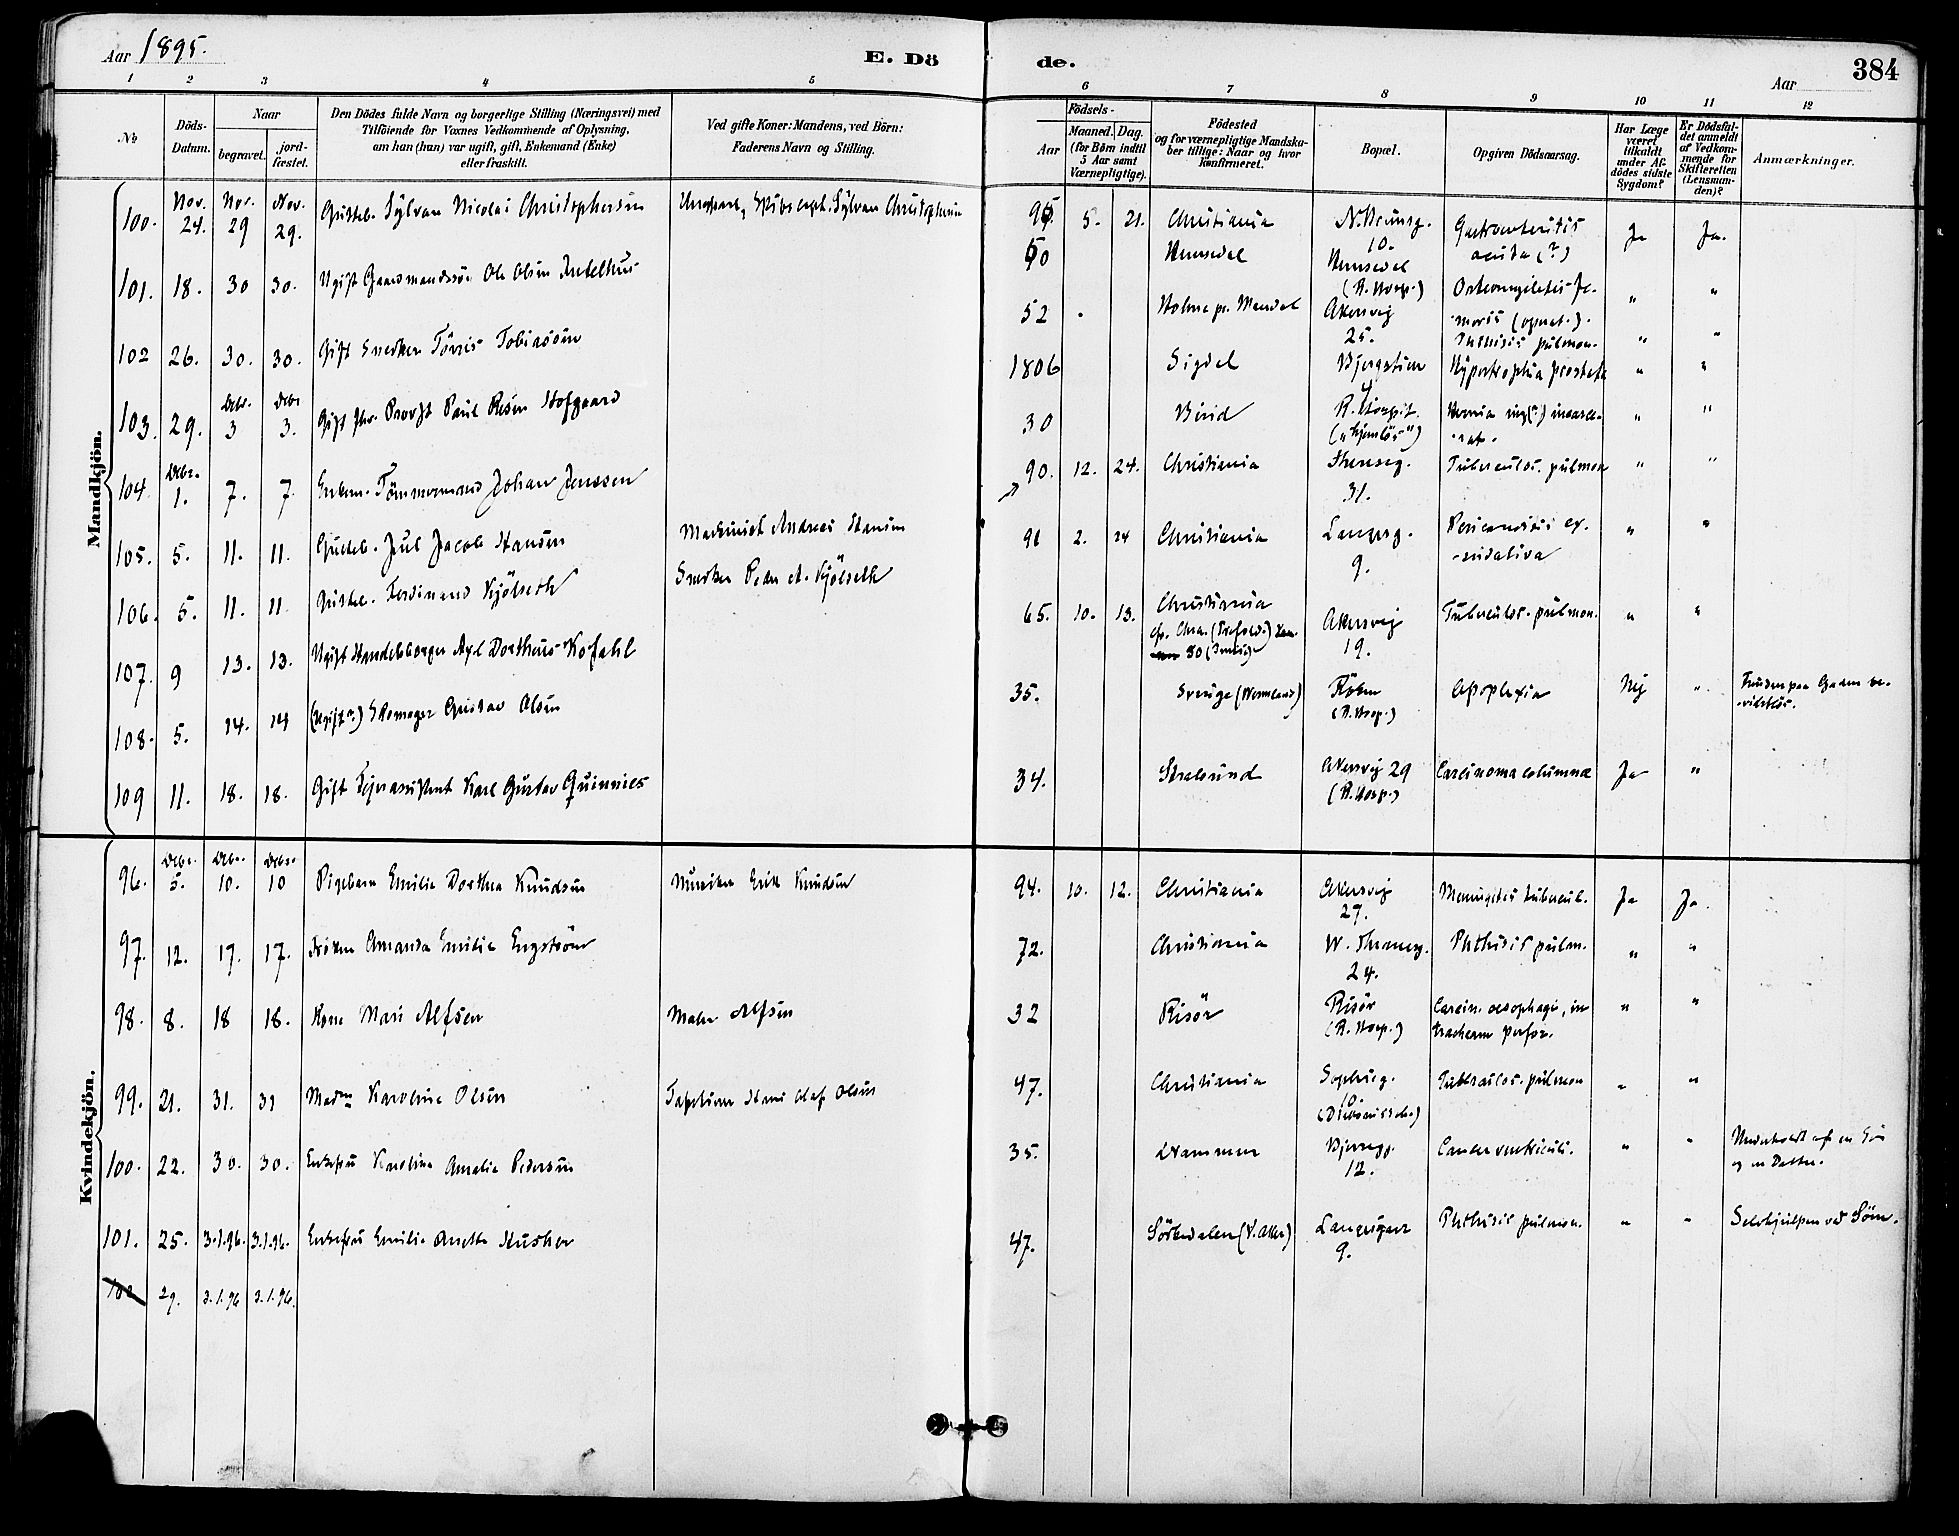 Aar 1895.
E. Dö
de.
Aar
384
1 2 3 4 5
6 7 8 9 10 11 12
No
Döds-
Datum.
Naar
begravet.
jord-
fæstet.
Den Dödes fulde Navn og borgerlige Stilling (Næringsvei) med
Tilföiende for Voxnes Vedkommende af Oplysning,
om han (hun) var ugift, gift, Enkemand (Enke)
eller fraskilt.
Ved gifte Koner: Mandens, ved Börn:
Faderens Navn og Stilling.
Födsels-
Aar
Maaned. Dag.
(for Börn indtil
5 Aar samt
Værnepligtige).
Födested
og for værnepligtige Mandska-
ber tillige: Naar og hvor
konfirmeret.
Bopæl.
Opgiven Dödsaarsag.
Har Læge
været
tilkaldt
under Af-
dödes sidste
Sygdom?
Er Dödsfal-
det anmeldt
af Vedkom-
mende for
Skifteretten
(Lensman-
den)?
Anmærkninger.
Mandkjön.
100. Nov. 24. Nov. 29 Nov. 29. Gutteb. Sylvan Nicolai Christophersen Sylvan Christophersen 95. 5. 21. Christiania 10. Gastroenteritis acuta (?) Ja Ja.
101. 18. 30 30. Ugift Gaardmandssön Ole Olsen 50 Hemsedal Hemsedal (R. Hosp.) Osteomyelitis fe-
moris (operat.). " "
102 26. 30. 30. Gift Snedker Tönnis Tobiassen 52 Holme pr. Mandal Akersvej 25. Phthisis pulmon. " "
103. 29. Debr. 3 Debr 3. Gift Provst Paul Hofgaard 1806 Sigdal Bjergstien Hypertrophia prostatæ " "
104. Debr. 1. 7. 7. Enkem. Tömmermand Johan Jenssen 30 Birid R. Hospit. Hernia ing(?) incarce-
rat. " "
105. 5. 11. 11. Gutteb. Juul Jacob Hansen Maskinist Andreas Hansen 90. 12. 24. Christiania 31. Tuberculos. pulmon " "
106. 5. 11. 11. Gutteb. Ferdinand Kjölseth Snedker Peder A. Kjölseth 91 2. 24 Christiania Langesg. 9. Pericarditis ex-
sudativa " "
107. 9 13. 13. Ugift Handelsborger Axel Dortheus Kofahl 65. 10. 13. Christiania Akersvej 19. Tuberculos. pulmon. " "
108. 5. 14. 14 (Ugift?) Skomager Gustav Olsen 35. Sverige (Vermland) (R. Hosp.) Apoplexia Nej " Funden paa Gaden be-
vidstlös.
109 11. 18. 18. Gift Karl Gustav Quinnies 34. Stralsund Akersvej 29 (R. Hosp.) Carcinoma columnæ Ja "
Kvindekjön.
96. Debr. 5. Debr. 10. Debr. 10 Pigebarn Emilie Dorthea Knudsen Erik Knudsen 94. 10. 12. Christiania Akersvej 27. Meningitis tubercul. Ja Ja.
97. 12. 17. 17. Fröken Amanda Emilie Engström 72. Christiania W. Thraneg. 24. Phthisis pulm. " "
98. 8. 18 18. Kone Mari Alfsen Maler Alfsen 32 Risör Risör (R. Hosp.) Carcin. oesophagi, in
tracheam perfor. " "
99. 21. 31. 31 Madm Karoline Olsen Hans Olaf Olsen 47. Christiania Sophieg. 10. Tuberculos. pulmon " "
100. 22. 30. 30. Enkefru Karoline Amalie Pedersen 35. Drammen Bjerregg. 12. Cancer ventriculi. " " Underholdt af en Sön
og en Datter.
101. 25. 3.1.96. 3.1.96. Enkefru Emilie Anette Husher 47. Sörkedalen (V. Aker) Langesgaar 9. Phthisis pulmon. " " Selvhjulpen ved Söm.
102 29. 3.1.96 3.1.96.